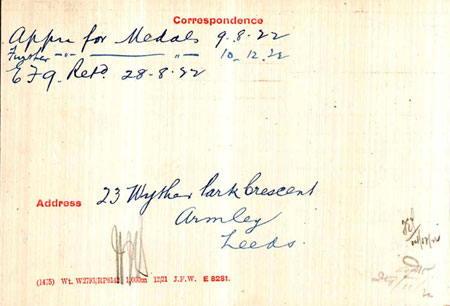 Correspondence
Appn for Medals 9.8.22
Further -"- "- 10.12.22
EF9. Retd. 28-8-22
Address 23 Wyther Park Crescent
Armley
Leeds.
(1435) Wt. 1,000m 12/21 J.F.W. E 8281.